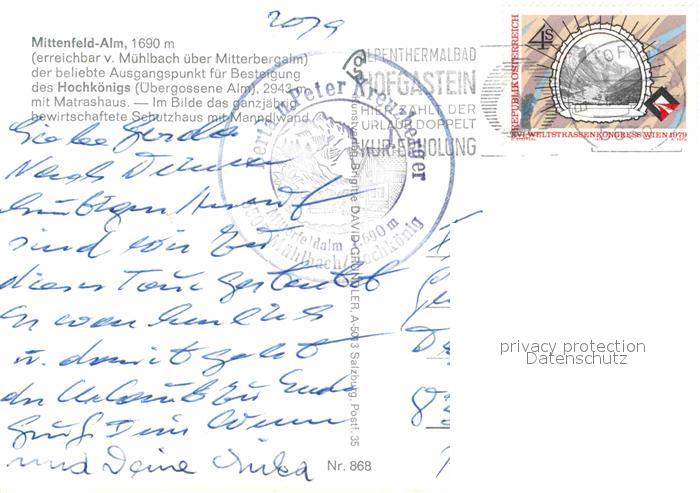 2079
Mittenfeld-Alm, 1690 m
(erreichbar v. Mühlbach über Mitterbergalm)
der beliebte Ausgangspunkt für Besteigung
des Hochkönigs (Übergossene Alm), 2943 m
mit Matrashaus. — Im Bilde das ganzjährig
bewirtschaftete Schutzhaus mit Manndlwand
Peter Kreuzberger
Mitterfeldalm 1690 m
Mühlbach/Hochkönig
ALPENTHERMALBAD
HOFGASTEIN
HIER ZÄHLT DER
URLAUB DOPPELT
KUR-ERHOLUNG
4 S
REPUBLIK ÖSTERREICH
XVI. WELTSTRASSENKONGRESS WIEN 1979
Liebe Gerda
Nach Deinem
Anruf
sind wir zu
dieser Tour gestartet
Es war herrlich
u. damit geht
der Urlaub zu Ende
Gruß Dein
und Deine Anka
Kunstverlag Brigitte DAVID-GRÜNDLER, A-5013 Salzburg, Postf. 35
Nr. 868
privacy protection
Datenschutz